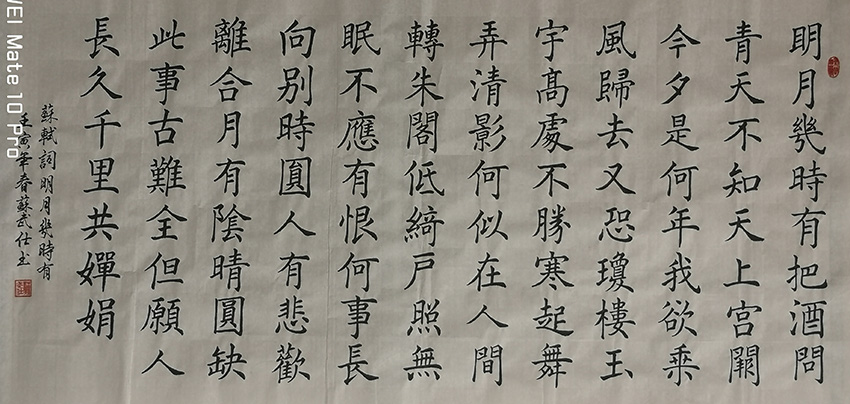 明月幾時有把酒問
青天不知天上宮闕
今夕是何年我欲乘
風歸去又恐瓊樓玉
宇髙處不勝寒起舞
弄清影何似在人間
轉朱閣低綺戶照無
眠不應有恨何事長
向别時圓人有悲歡
離合月有陰晴圓缺
此事古難全但願人
長久千里共嬋娟
蘇軾詞明月幾時有
壬寅年春蘇武仕书
WEI Mate 10 Pro